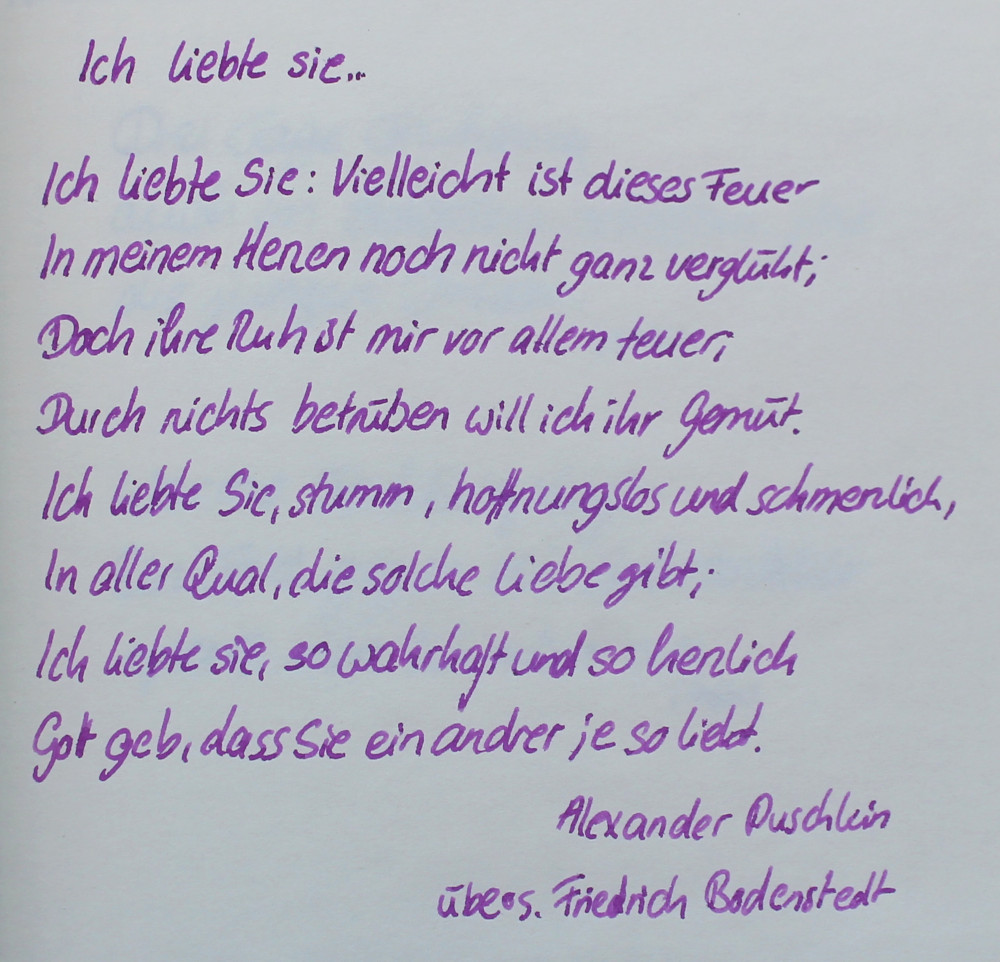 Ich liebte sie...
Ich liebte Sie: Vielleicht ist dieses Feuer
In meinem Herzen noch nicht ganz verglüht;
Doch ihre Ruh ist mir vor allem teuer;
Durch nichts betrüben will ich ihr Gemüt.
Ich liebte Sie, stumm, hoffnungslos und schmerzlich,
In aller Qual, die solche Liebe gibt;
Ich liebte sie, so wahrhaft und so herzlich
Gott geb, dass Sie ein andrer je so liebt.
Alexander Puschkin
übers. Friedrich Bodenstedt